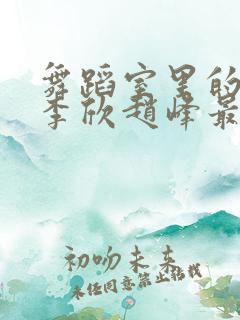 舞蹈室里的
李欣赵峰最
初吻未来
未经同意禁止转载